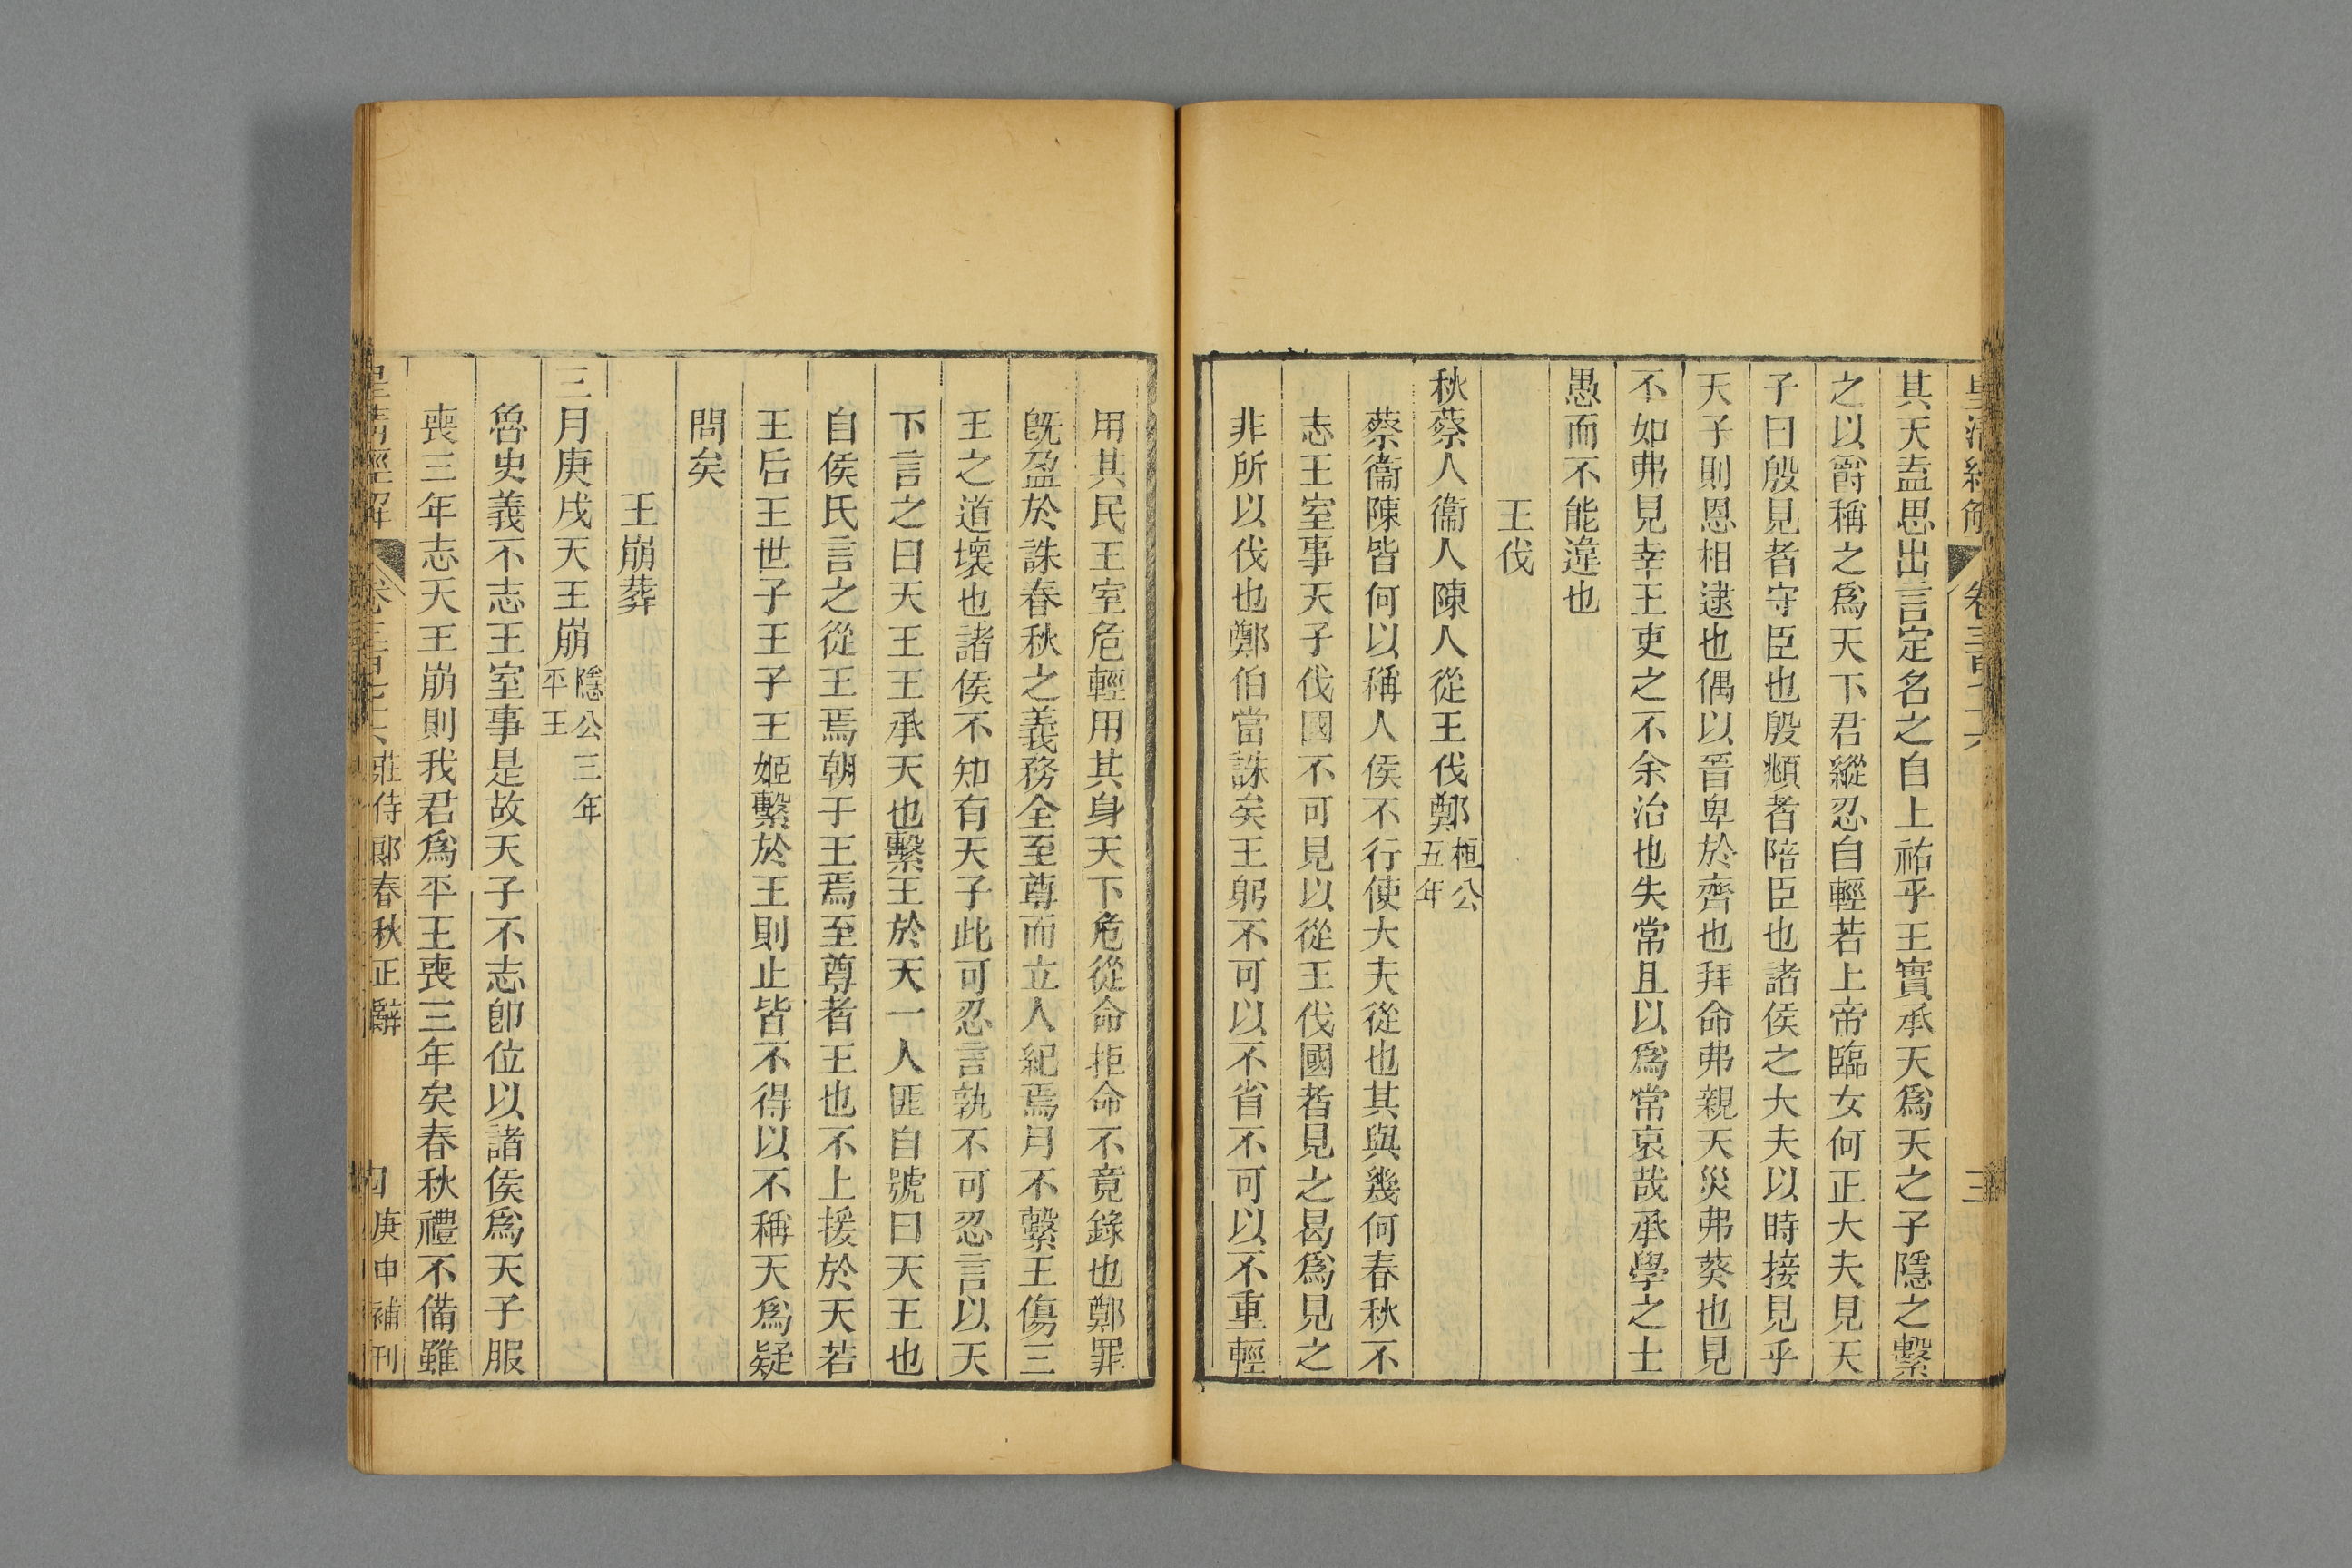 皇清經解 卷三百七十六 三
其天盍思出言定名之自上祐乎王實承天爲天之子隱之繫
之以爵稱之爲天下君縱忍自輕若上帝臨女何正大夫見天
子曰殷見者守臣也殷頫者陪臣也諸侯之大夫以時接見乎
天子則恩相逮也偶以晉卑於齊也拜命弗親天災弗葵也見
不如弗見幸王吏之不余治也失常且以爲常哀哉承學之士
愚而不能違也
王伐
秋蔡人衞人陳人從王伐鄭桓公五年
蔡衞陳皆何以稱人侯不行使大夫從也其與幾何春秋不
志王室事天子伐國不可見以從王伐國者見之曷爲見之
非所以伐也鄭伯當誅矣王躬不可以不省不可以不重輕
用其民王室危輕用其身天下危從命拒命不竟錄也鄭罪
旣盈於誅春秋之義務全至尊而立人紀焉月不繫王傷三
王之道壞也諸侯不知有天子此可忍言孰不可忍言以天
下言之曰天王王承天也繫王於天一人匪自號曰天王也
自侯氏言之從王焉朝于王焉至尊者王也不上援於天若
王后王世子王子王姬繫於王則止皆不得以不稱天爲疑
問矣
王崩葬
三月庚戌天王崩隱公三年平王
魯史義不志王室事是故天子不志卽位以諸侯爲天子服
喪三年志天王崩則我君爲平王喪三年矣春秋禮不備雖
皇清經解 卷三百七十六 莊侍郎春秋正辭 四 庚申補刊